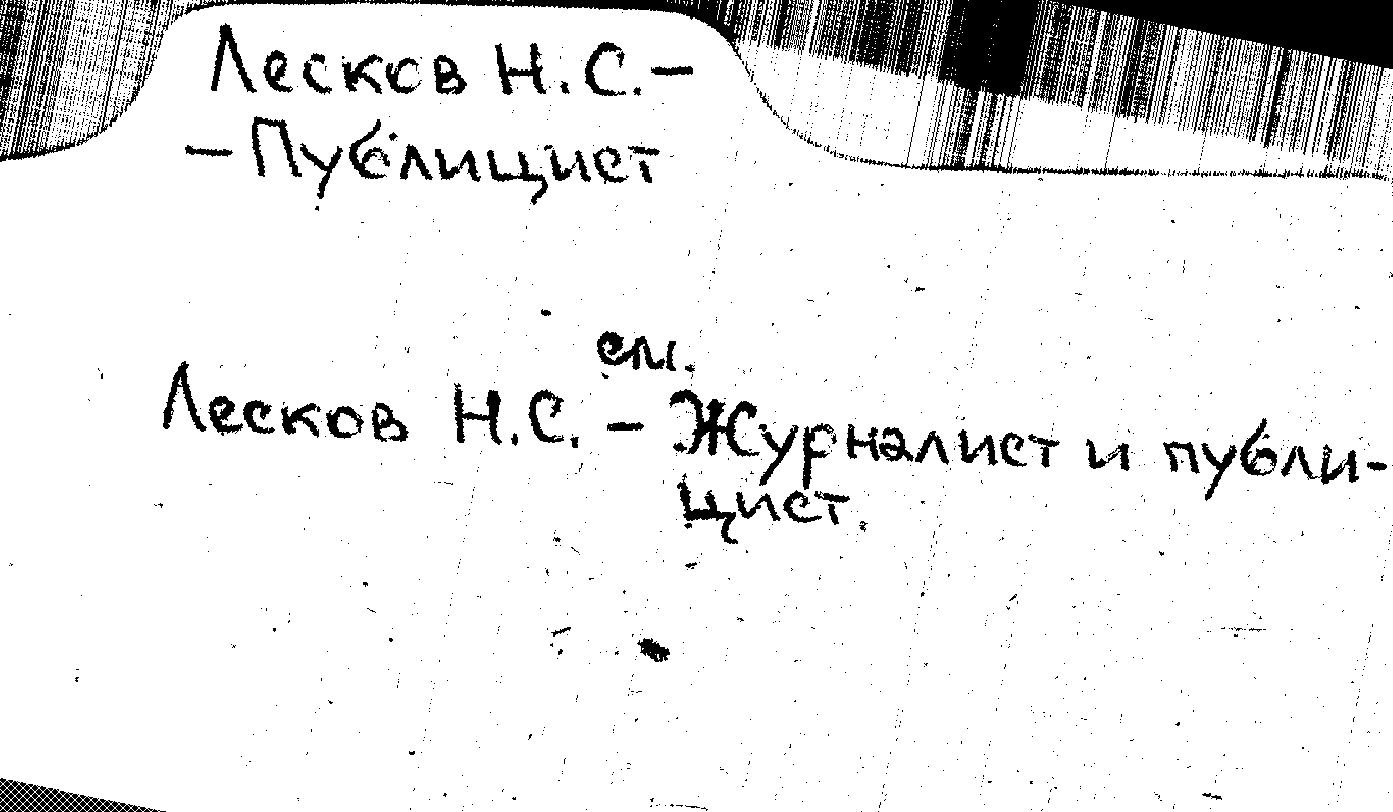 Лесков Н.С.–
–Публицист
см.
Лесков Н.С. – Журналист и публи-
цист.